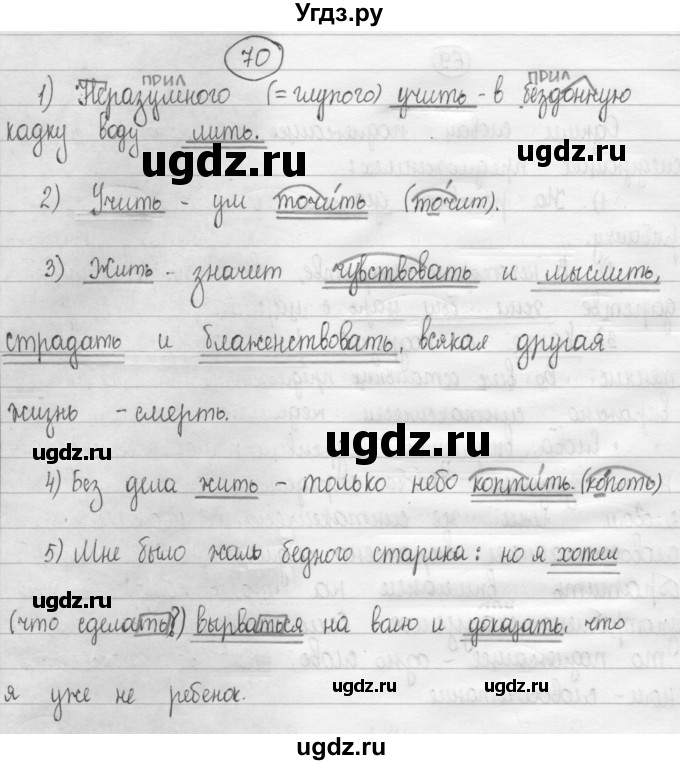 Угдз.ру
70
ПРИЛ ПРИЛ
1) Неразумного (= глупого) учить - в бездонную
кадку воду лить.
ugdz.ru ugdz.ru
2) Учить - ум точить (точит).
3) Жить - значит чувствовать и мыслить,
страдать и блаженствовать, всякая другая
жизнь - смерть.
ugdz.ru ugdz.ru
4) Без дела жить - только небо коптить. (копоть)
5) Мне было жаль бедного старика: но я хотел
ugdz.ru
(что сделать?) вырваться на волю и доказать, что
я уже не ребенок.
ugdz.ru ugdz.ru
ugdz.ru